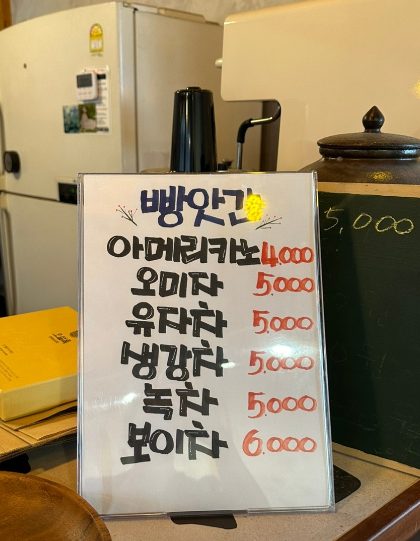 빵앗간
아메리카노 4.000
오미자 5.000
유자차 5.000
생강차 5.000
녹차 5.000
보이차 6.000
5,000